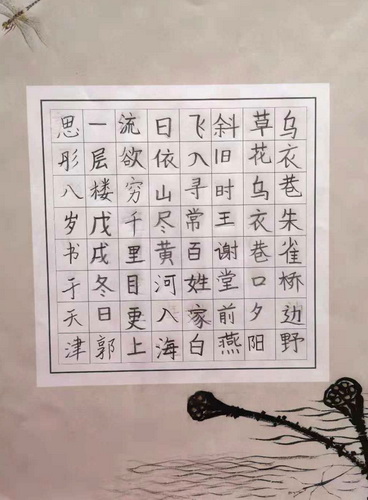 乌衣巷朱雀桥边野
草花乌衣巷口夕阳
斜旧时王谢堂前燕
飞入寻常百姓家白
日依山尽黄河入海
流欲穷千里目更上
一层楼戊戌冬日郭
思彤八岁书于天津